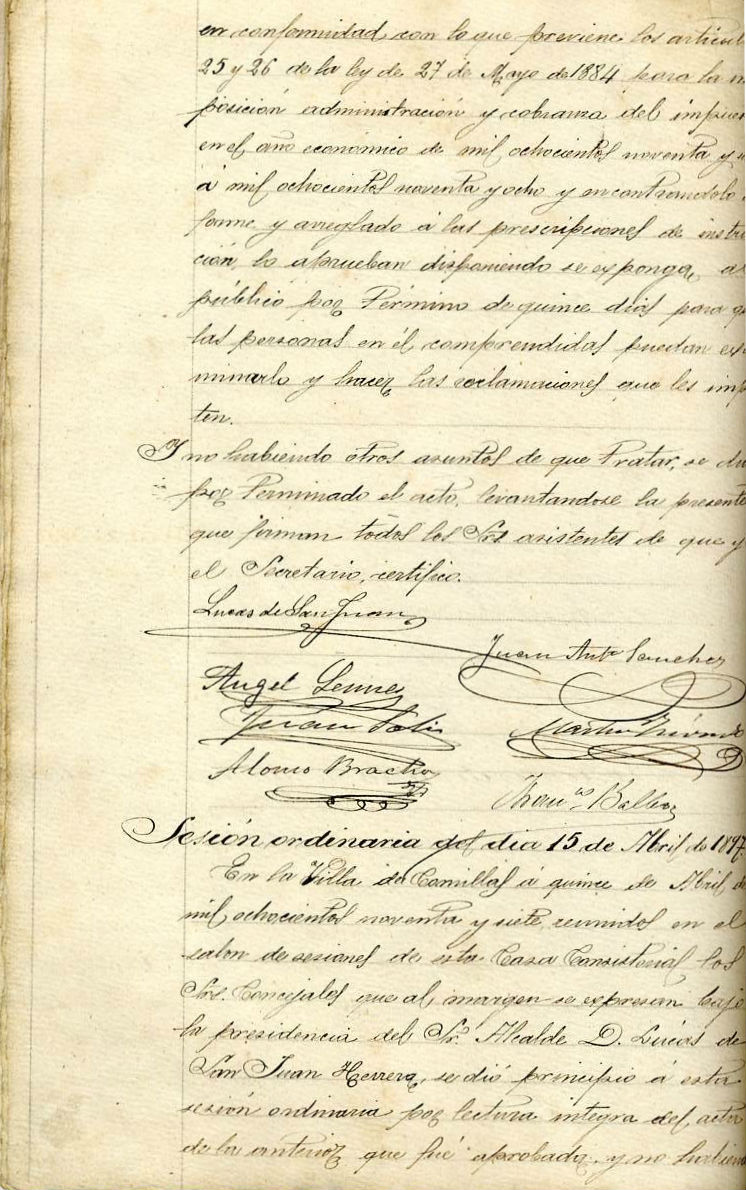 en conformidad con lo que previene los articul
25 y 26 de la ley de 27 de Mayo de 1884 para la
posición administración y cobranza del impues
en el año económico de mil ochocientos noventa y
á mil ochocientos noventa y ocho y encontrandolo
forme y arreglado á las prescripciones de instru
ción, lo aprueban disponiendo se exponga, al
público por término de quince dias para q
las personas en él comprendidas puedan exa
minarlo y hacer las reclamaciones que les impor
ten.
Y no habiendo otros asuntos de que tratar, se dió
por terminado el acto, levantandose la presente
que firman todos los Srs. asistentes de que y
el Secretario, certifico.
Lucas de San Juan
Juan Antº Sanchez
Angel
Juan
Martin
Alonso
Sesión ordinaria del dia 15 de Abril de 1897
En la Villa de Comillas á quince de Abril de
mil ochocientos noventa y siete, reunidos en el
salon de sesiones de esta Casa Consistorial los
Srs. Concejales que al margen se expresan bajo
la presidencia del Sr. Alcalde D. Lucas de
San Juan Herrera, se dió principio á esta
sesión ordinaria por lectura integra del acta
de la anterior que fué aprobada, y no habiend